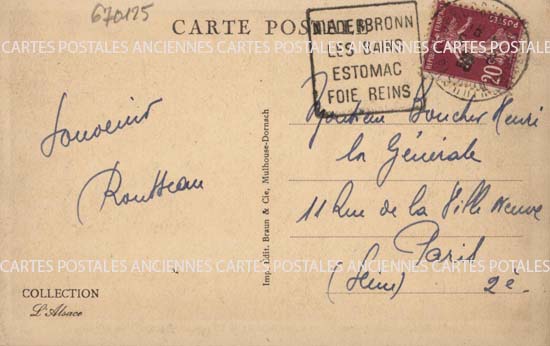 670125
CARTE POSTALE
NIEDERBRONN
LES BAINS
ESTOMAC
FOIE REINS
POSTES
20
Souvenir
Rousseau
Monsieur Boucher Henri
La Générale
11 Rue de la Ville Neuve
Paris
(Seine) 2e
Imp. Edit. Braun & Cie, Mulhouse-Dornach
CARTES POSTALES ANCIENNES CARTES POSTALES ANCIENNES CARTES POSTALES
CARTES POSTALES ANCIENNES CARTES POSTALES ANCIENNES CARTES POSTALES
COLLECTION
L'Alsace